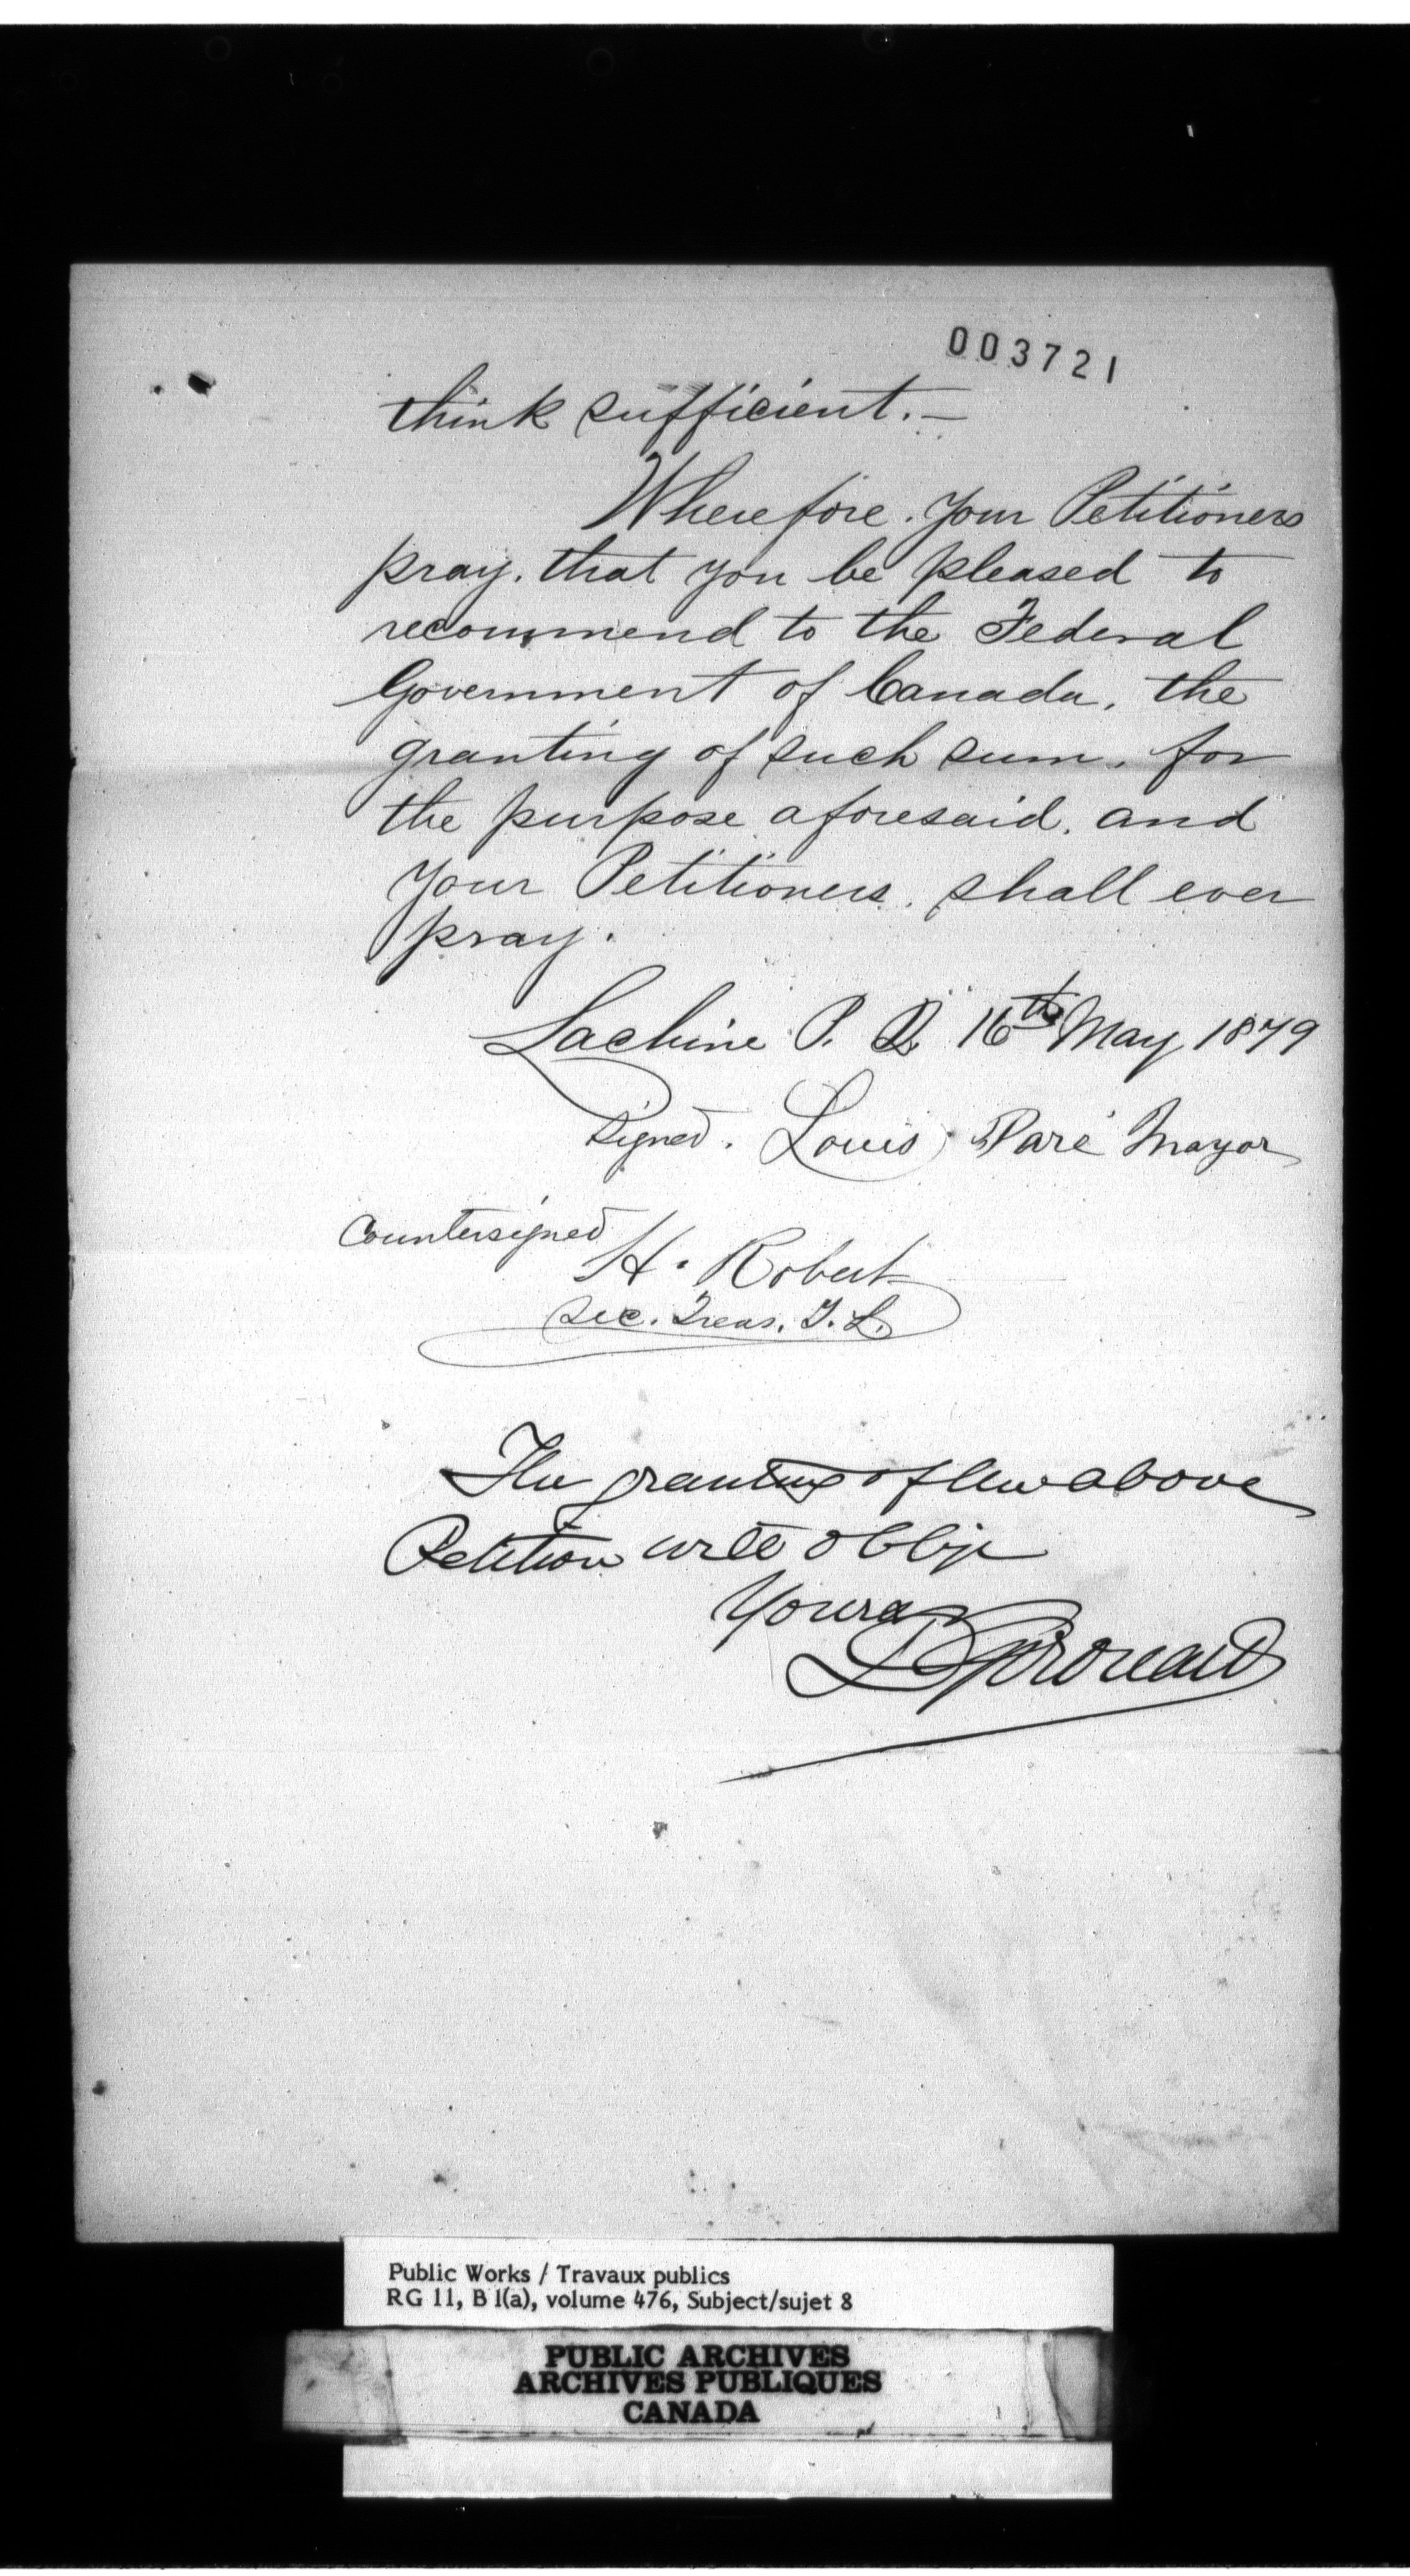 003721
think sufficient. —
Wherefore. Your Petitioners
pray. that you be pleased to
recommend to the Federal
Government of Canada, the
granting of such sum, for
the purpose aforesaid, and
Your Petitioners, shall ever
pray.
Lachine P. Q. 16th May 1879
Signed. Louis Paré Mayor
Countersigned
H. Robert
Sec. Treas. T. L.
The granting of the above
Petition will oblige
Yours
D Girouard
Public Works / Travaux publics
RG 11, B 1(a), volume 476, Subject/sujet 8
PUBLIC ARCHIVES
ARCHIVES PUBLIQUES
CANADA